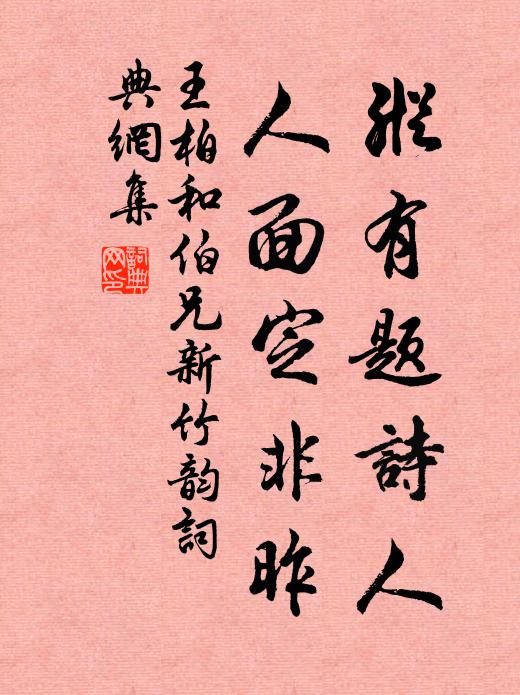 縱有題詩人
人面定非昨
王柏和伯兄新竹韵詞
典網集
詞典
网印